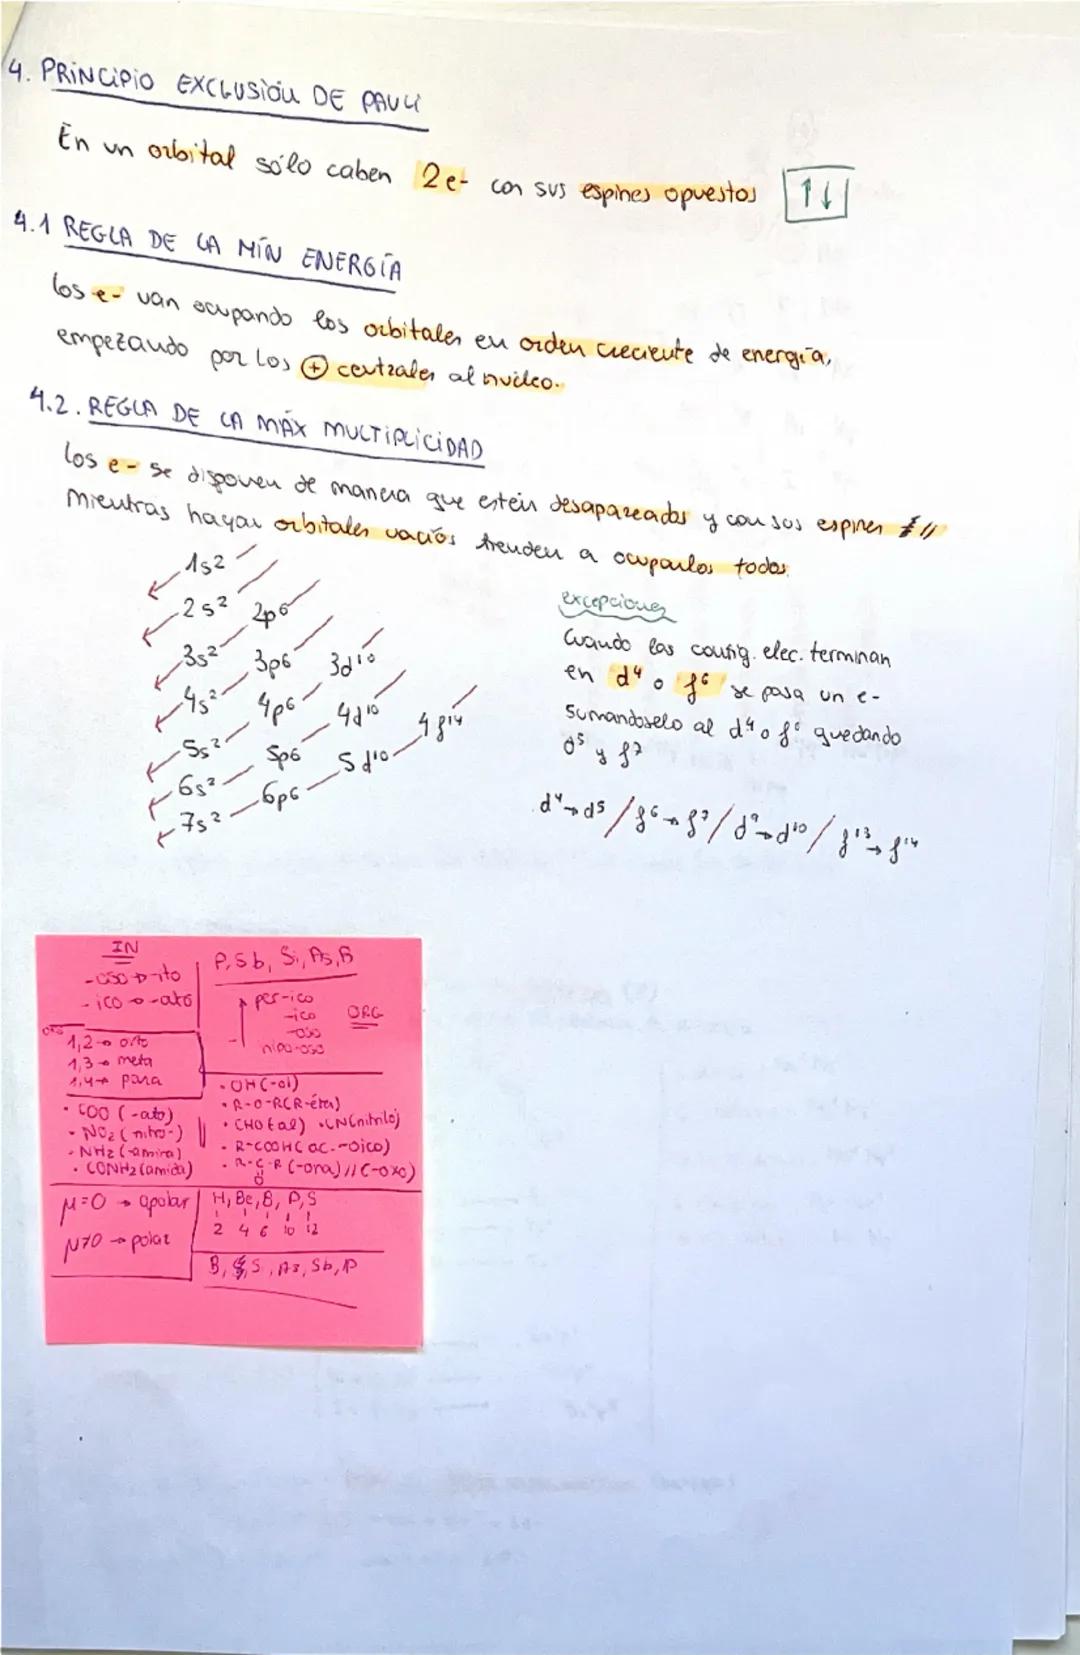 4. PRINCIPIO EXCLUSIÓN DE PAULI
En un orbital sólo caben 2e- con sus espines opuestos ↑↓
4.1 REGLA DE LA MÍN ENERGÍA
los e- van ocupando los orbitales en orden creciente de energía,
empezando por los ⊕ centrales al núcleo.
4.2. REGLA DE LA MÁX MULTIPLICIDAD
los e- se disponen de manera que estén desapareados y con sus espines //
Mientras hayan orbitales vacíos tienden a ocuparlos todos.
1s²
2s² 2p⁶
3s² 3p⁶ 3d¹⁰
4s² 4p⁶ 4d¹⁰ 4f¹⁴
5s² 5p⁶ 5d¹⁰
6s² 6p⁶
7s²
excepciones
Cuando las config. elec. terminan
en d⁴ o f⁶ se pasa un e-
sumandoselo al d⁴ o f⁶ quedando
d⁵ y f⁷
d⁴→d⁵ / f⁶→f⁷ / d⁹→d¹⁰ / f¹³→f¹⁴
IN
-oso → -ito
-ico → -ato
P, Sb, Si, As, B
per-ico
-ico
-oso
hipo-oso
ORG
1,2 → orto
1,3 → meta
1,4 → para
· COO (-ato)
· NO₂ (nitro-)
· NH₂ (-amina)
· CONH₂ (amida)
· OH (-ol)
· R-O-R (R-éter)
· CHO (al) · CN (nitrilo)
· R-COOH (ac. -oico)
· R-C-R (-ona) // (-oxo)
O
μ=0 → apolar
μ≠0 → polar
H, Be, B, P, S
2 4 6 10 12
B, S, As, Sb, P